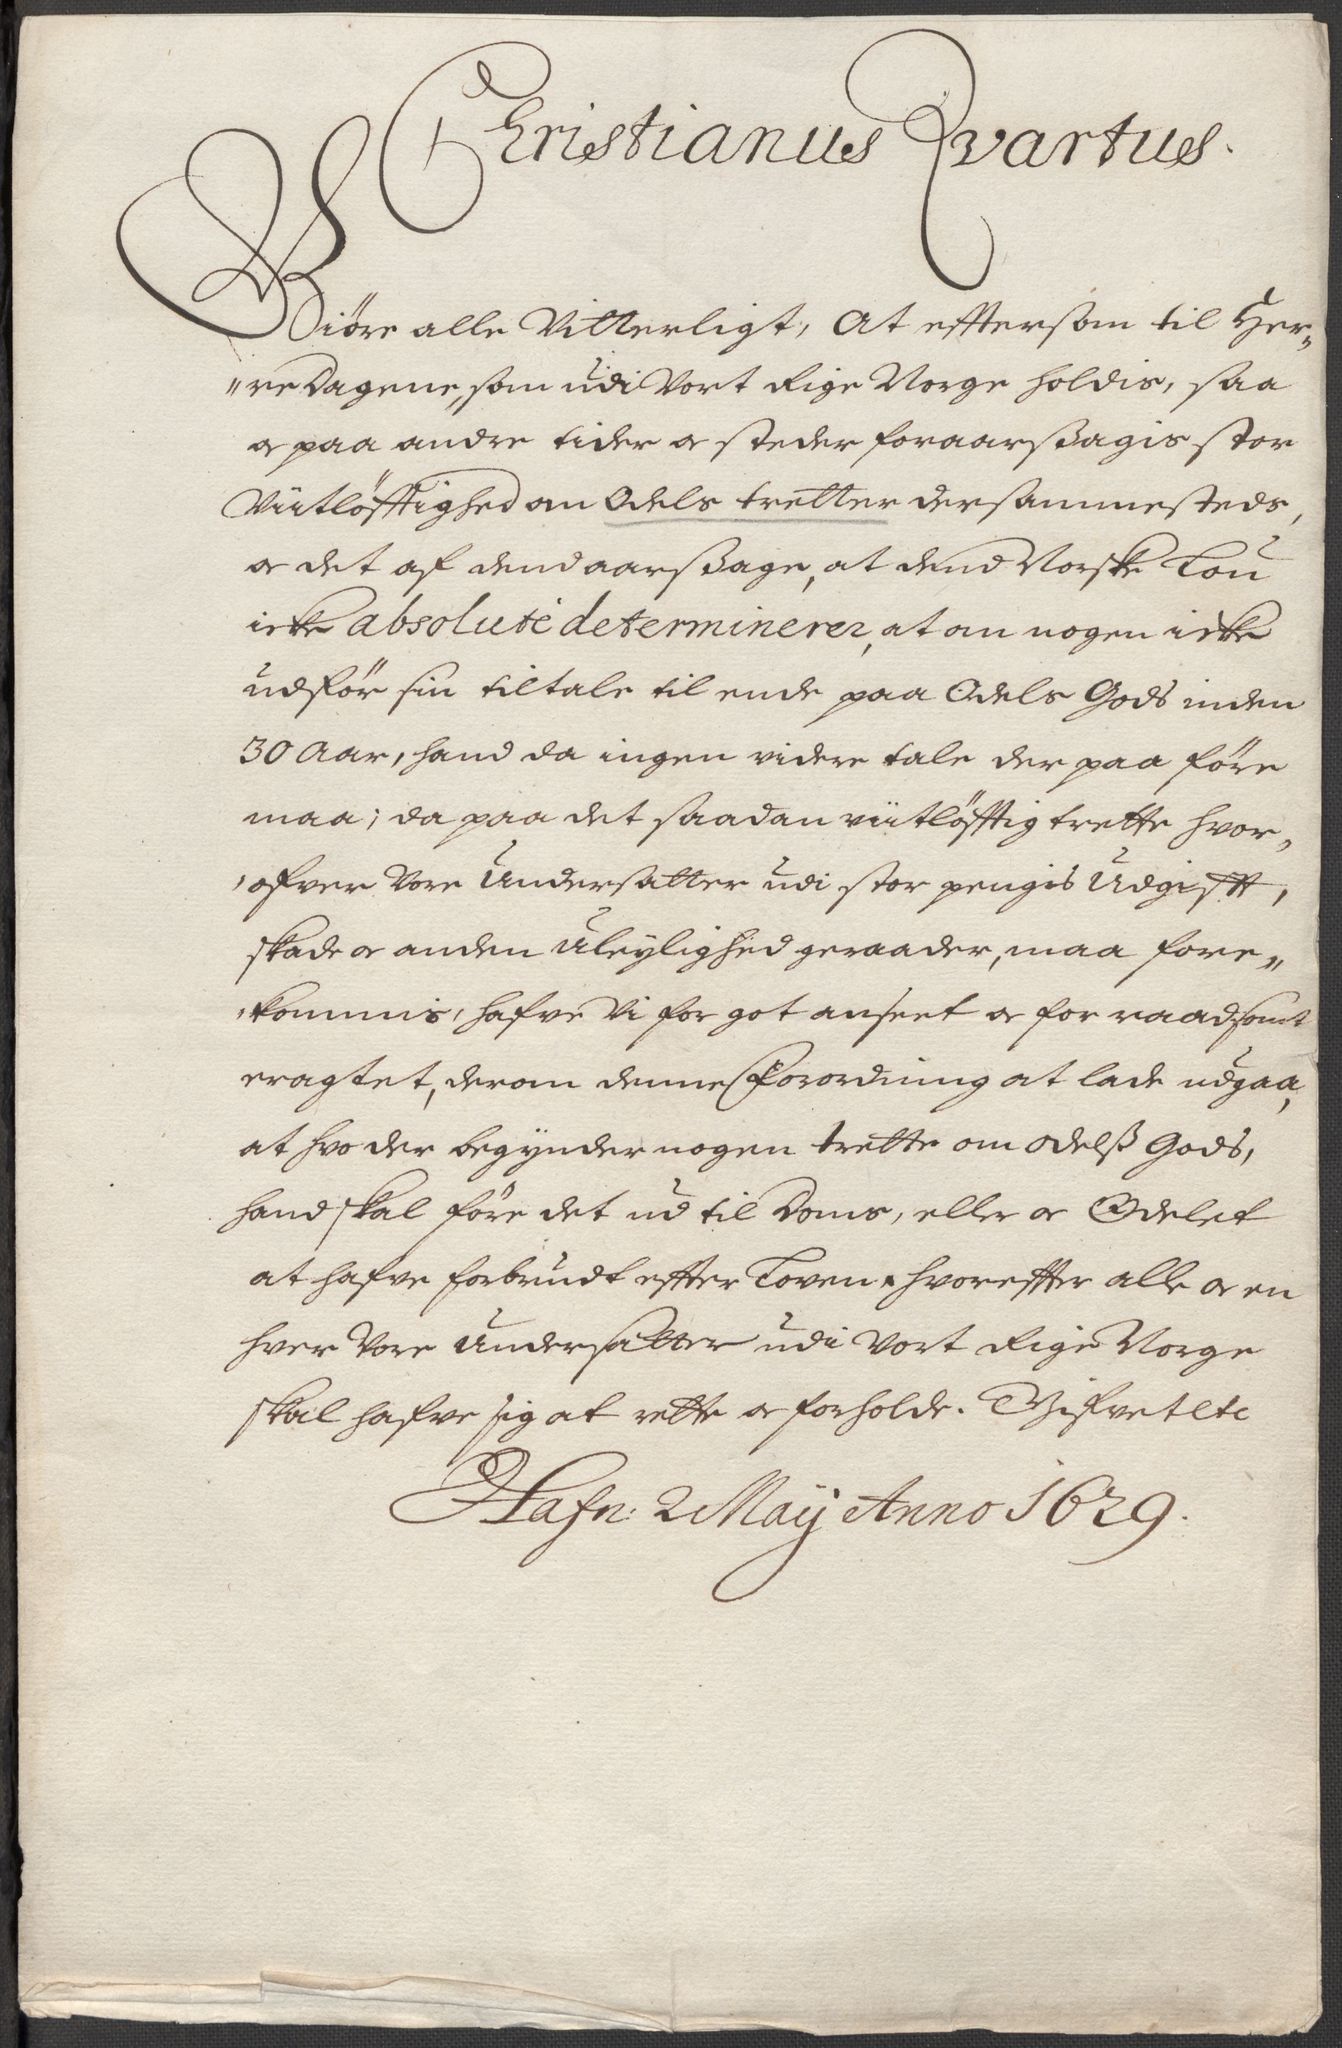 Christianus Qvartus.
Giöre alle Vitterligt, At effter som til Her„
„re Dagene, som udi Vort Rige Norge holdis, saa
oc paa andre tider oc steder foraarsßagis stor
Viitlöfftighed om Odels tretter dersammesteds,
oc det af dend aarsßage, at dend Norske Lou
icke absoluté determinerer, at om nogen icke
udför sin tiltale til ende paa Odels Gods inden
30 Aar, hand da ingen videre tale der paa före
maa; da paa det saadan viitlöfftig trette hvor„
„ofver Vore Undersatter udi stor pengis Udgifft,
skade oc anden Uleylighed geraader, maa fore„
„kommis, hafve Vi for got anseet oc for raadsomt
eragtet, derom denne Forordning at lade udgaa,
at hvo der begynder nogen trette om odelß Gods,
hand skal före det ud til Doms, eller oc Odelet
at hafve forbrudt effter Loven. hvoreffter alle oc en
hver Vore Undersatter udi Vort Rige Norge
skal hafve sig at rette oc forholde. Gifvet etc
Hafn: 2 Maij Anno 1629.